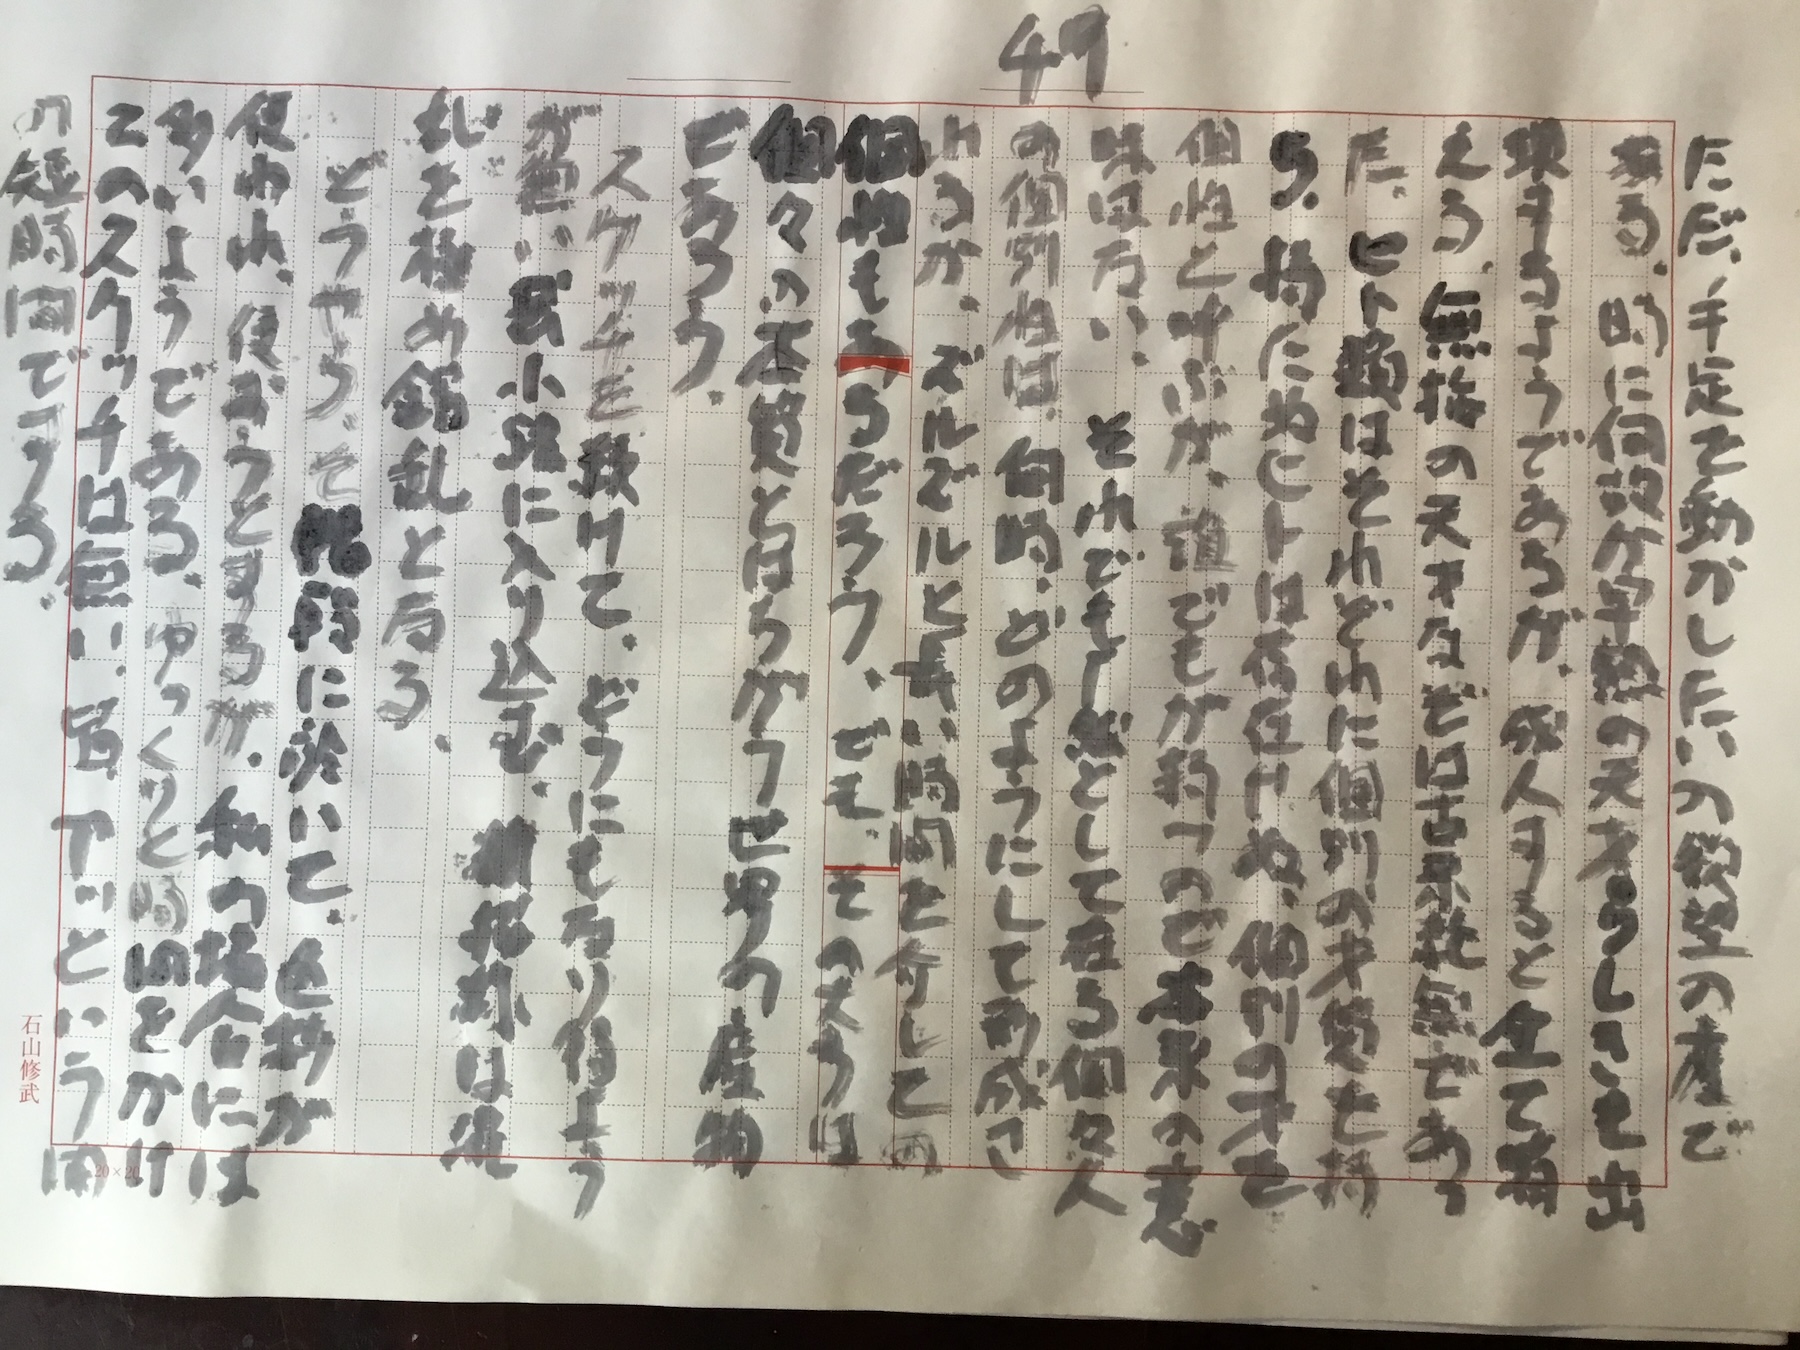 49
ただ、手足を動かしたいの欲望の産で
ある。時に何故か早熟の天才らしきも出
現するようであるが、成人すると全て消
える。無族の天才なぞは古来絶無であっ
た。ヒト類はそれぞれに個別の才質を持
ち、持たぬヒトは存在けぬ、個別の才を
個性と呼ぶが、誰でもが持つので本来の意
味は方い。それでもし感として在る個々人
の個別性は、何時、どのようにして形成さ
れるか。ズルズルと長い時間を介しての
個性もあるだろう、でも、その大うは
個々の本質とはちがう世界の産物
であろう。
スケッチを続けて、どうにも方り得よう
が無い、袋小路に入り込む。精根は混
乱を極め錯乱と方る。
どうやら、その段階に於いて、色彩が
使われ、使おうとするが、私の場合には
多いようである。ゆっくりと時間をかけ
このスケッチは無い。皆、アッという間
の短時間でする。
石山修武
20×20